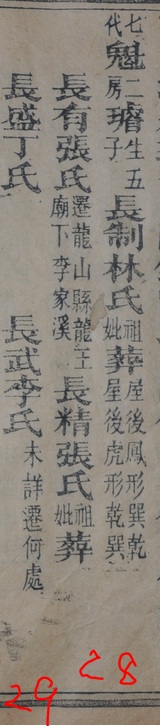 七代魁二房璿生五子長制林氏祖葬屋後鳳形巽乾妣葬屋後虎形乾巽
長有張氏遷龍山縣龍王廟下李家溪長精張氏祖妣葬
長盛丁氏 長武李氏未詳遷何處
28
29